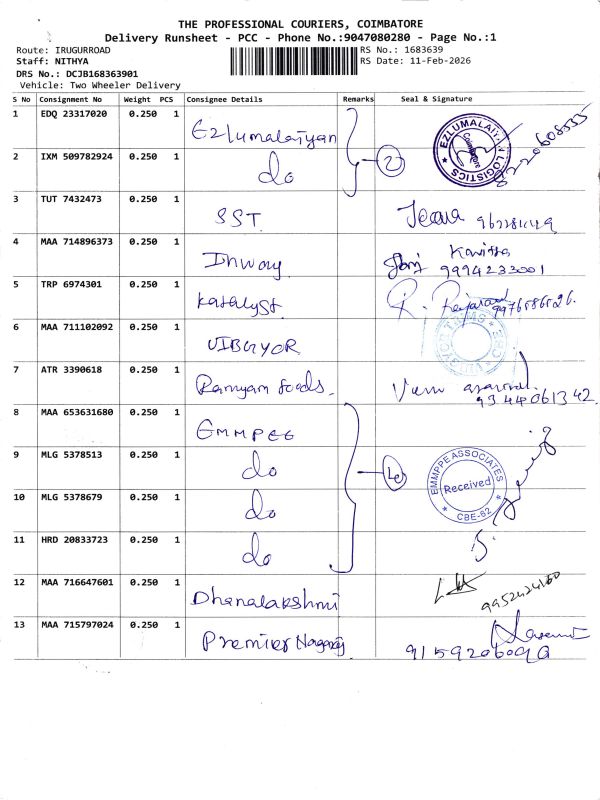 THE PROFESSIONAL COURIERS, COIMBATORE
Delivery Runsheet - PCC - Phone No.:9047080280 - Page No.:1
Route: IRUGURROAD
RS No.: 1683639
Staff: NITHYA
RS Date: 11-Feb-2026
DRS No.: DCJB168363901
Vehicle: Two Wheeler Delivery
S No Consignment No Weight PCS Consignee Details Remarks Seal & Signature
1 EDQ 23317020 0.250 1 Ezlumalaiyan
EZLUMALAIYAN LOGISTICS
Coimbatore
2 IXM 509782924 0.250 1 do
2
3 TUT 7432473 0.250 1 SST
4 MAA 714896373 0.250 1 Inway
Kavitha
9994233001
5 TRP 6974301 0.250 1 Katalyst
R.
9976586526.
6 MAA 711102092 0.250 1 VIBGYOR
7 ATR 3390618 0.250 1 Ramyam foods.
9344061342
8 MAA 653631680 0.250 1 EMMPEE
9 MLG 5378513 0.250 1 do
EMMPPE ASSOCIATES
Received
CBE-62
10 MLG 5378679 0.250 1 do
11 HRD 20833723 0.250 1 do
12 MAA 716647601 0.250 1 Dhanalakshmi
13 MAA 715797024 0.250 1 Premier Nagaraj